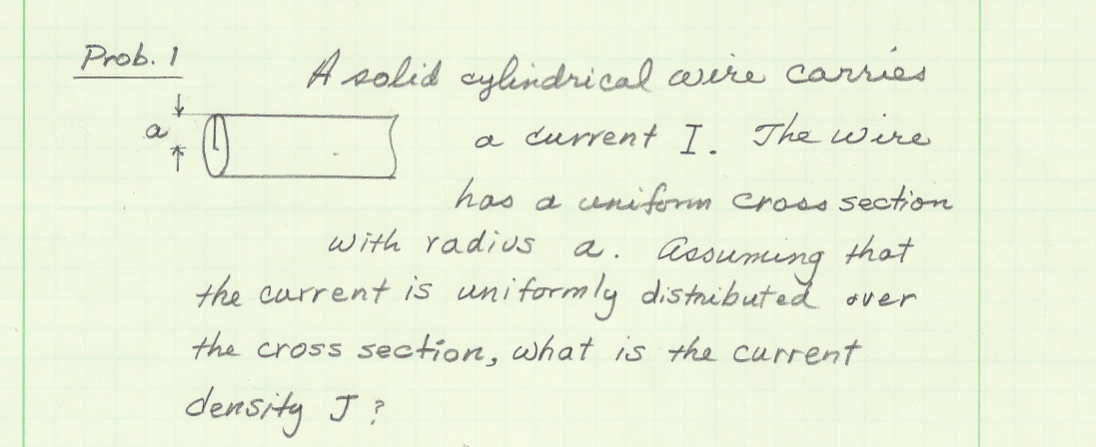 Prob. 1
A solid cylindrical wire carries
a
a current I. The wire
has a uniform cross section
with radius a. Assuming that
the current is uniformly distributed over
the cross section, what is the current
density J?